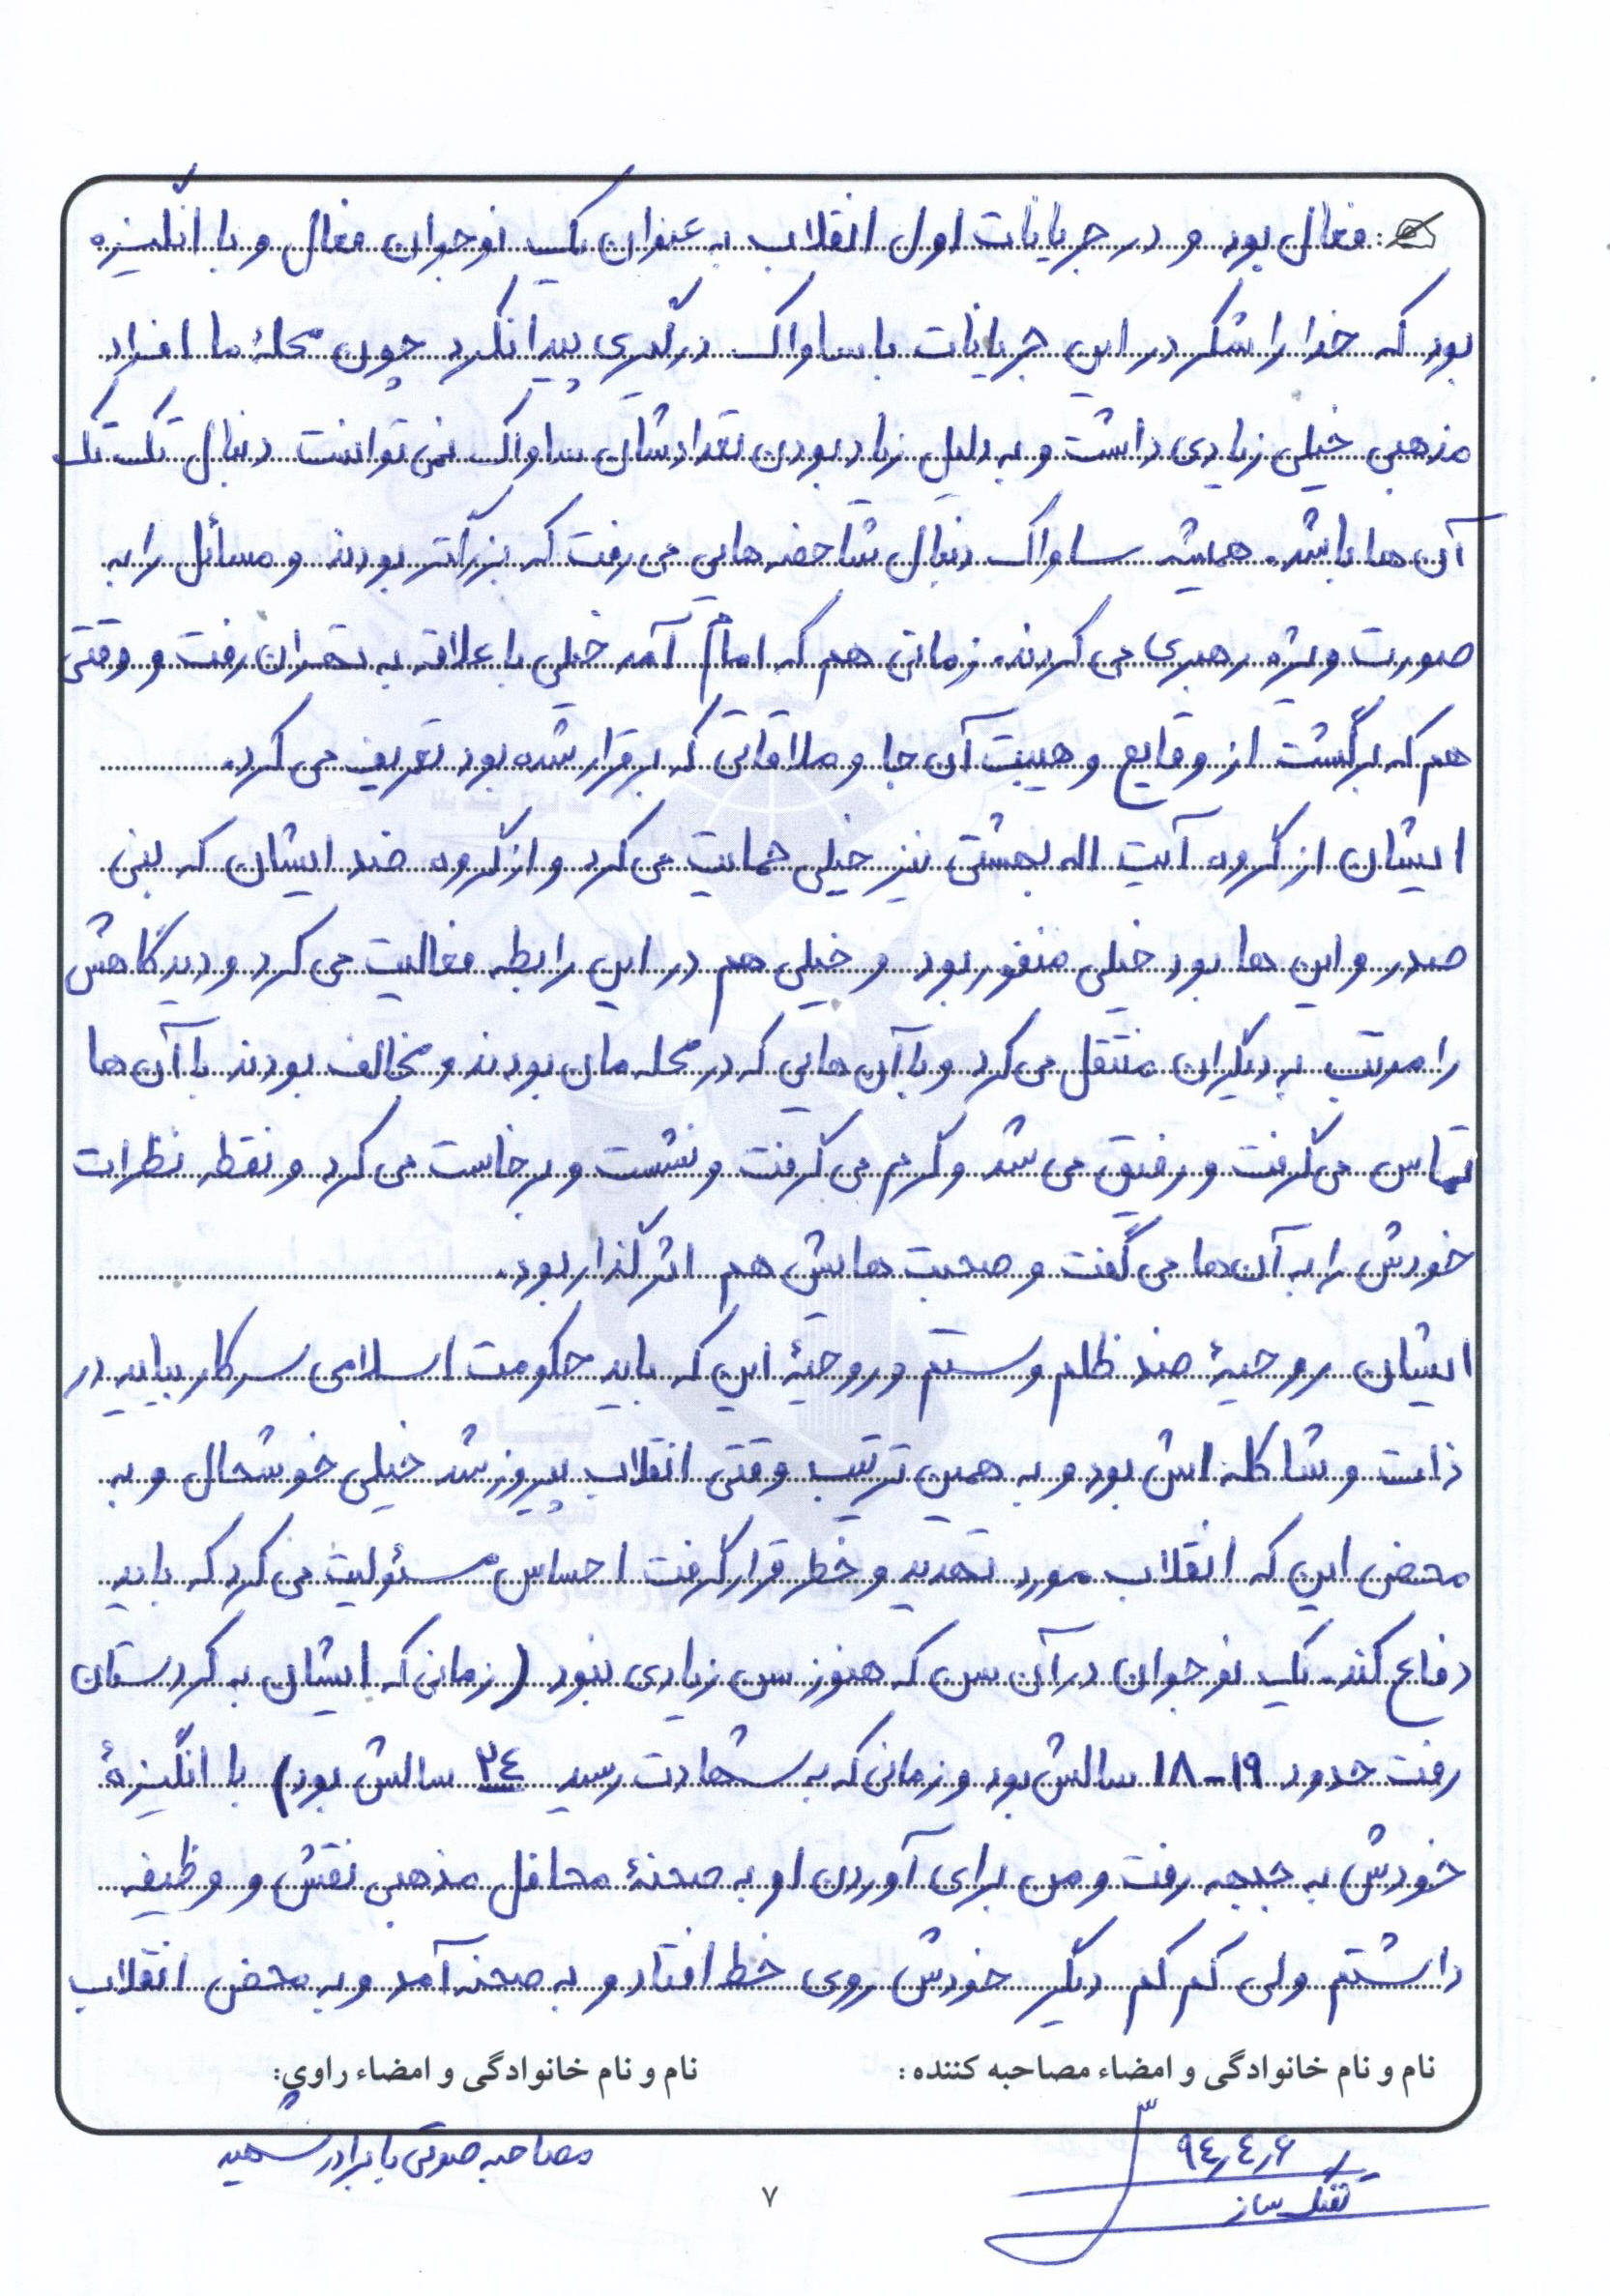 فعال بود و در جریانات اول انقلاب به عنوان یک نوجوان فعال و با انگیزه
بود که خدا را شکر در این جریانات با ساواک درگیری پیدا نکرد چون محلۀ ما افراد
مذهبی خیلی زیادی داشت و به دلیل زیاد بودن تعدادشان ساواک نمی توانست دنبال تک تک
آن ها باشد. همیشه ساواک دنبال شاخصه هایی می رفت که بزرگتر بودند و مسائل را به
صورت ویژه رهبری می کردند. زمانی هم که امام آمد خیلی با علاقه به تهران رفت و وقتی
هم که برگشت از وقایع و هیبت آن جا و ملاقاتی که برقرار شده بود تعریف می کرد.
ایشان از گروه آیت اله بهشتی نیز خیلی حمایت می کرد و از گروه ضد ایشان که بنی
صدر و این ها بود خیلی منفور بود و خیلی هم در این رابطه فعالیت می کرد و دیدگاهش
را مرتب به دیگران منتقل می کرد و با آن هایی که در محله مان بودند و مخالف بودند با آن ها
تماس می گرفت و رفیق می شد و گرم می گرفت و نشست و برخاست می کرد و نقطه نظرات
خودش را به آن ها می گفت و صحبت هایش هم اثر گذار بود.
ایشان روحیۀ ضد ظلم و ستم و روحیۀ این که باید حکومت اسلامی سر کار بیاید در
ذات و شاکله اش بود و به همین ترتیب وقتی انقلاب پیروز شد خیلی خوشحال و به
محض این که انقلاب مورد تهدید و خطر قرار گرفت احساس مسئولیت می کرد که باید
دفاع کند. یک نوجوان در آن سن که هنوز سن زیادی نبود (زمانی که ایشان به کردستان
رفت حدود ۱۹-۱۸ سالش بود و زمانی که به شهادت رسید ۲٤ سالش بود) با انگیزۀ
خودش به جبهه رفت و من برای آوردن او به صحنۀ محافل مذهبی نقش و وظیفه
داشتم ولی کم کم دیگر خودش روی خط افتاد و به صحنه آمد و به محض انقلاب
نام و نام خانوادگی و امضاء مصاحبه کننده: نام و نام خانوادگی و امضاء راوی:
۹٤,٤,۶ مصاحبه صوتی با برادر شهید
تفنگ ساز
۷